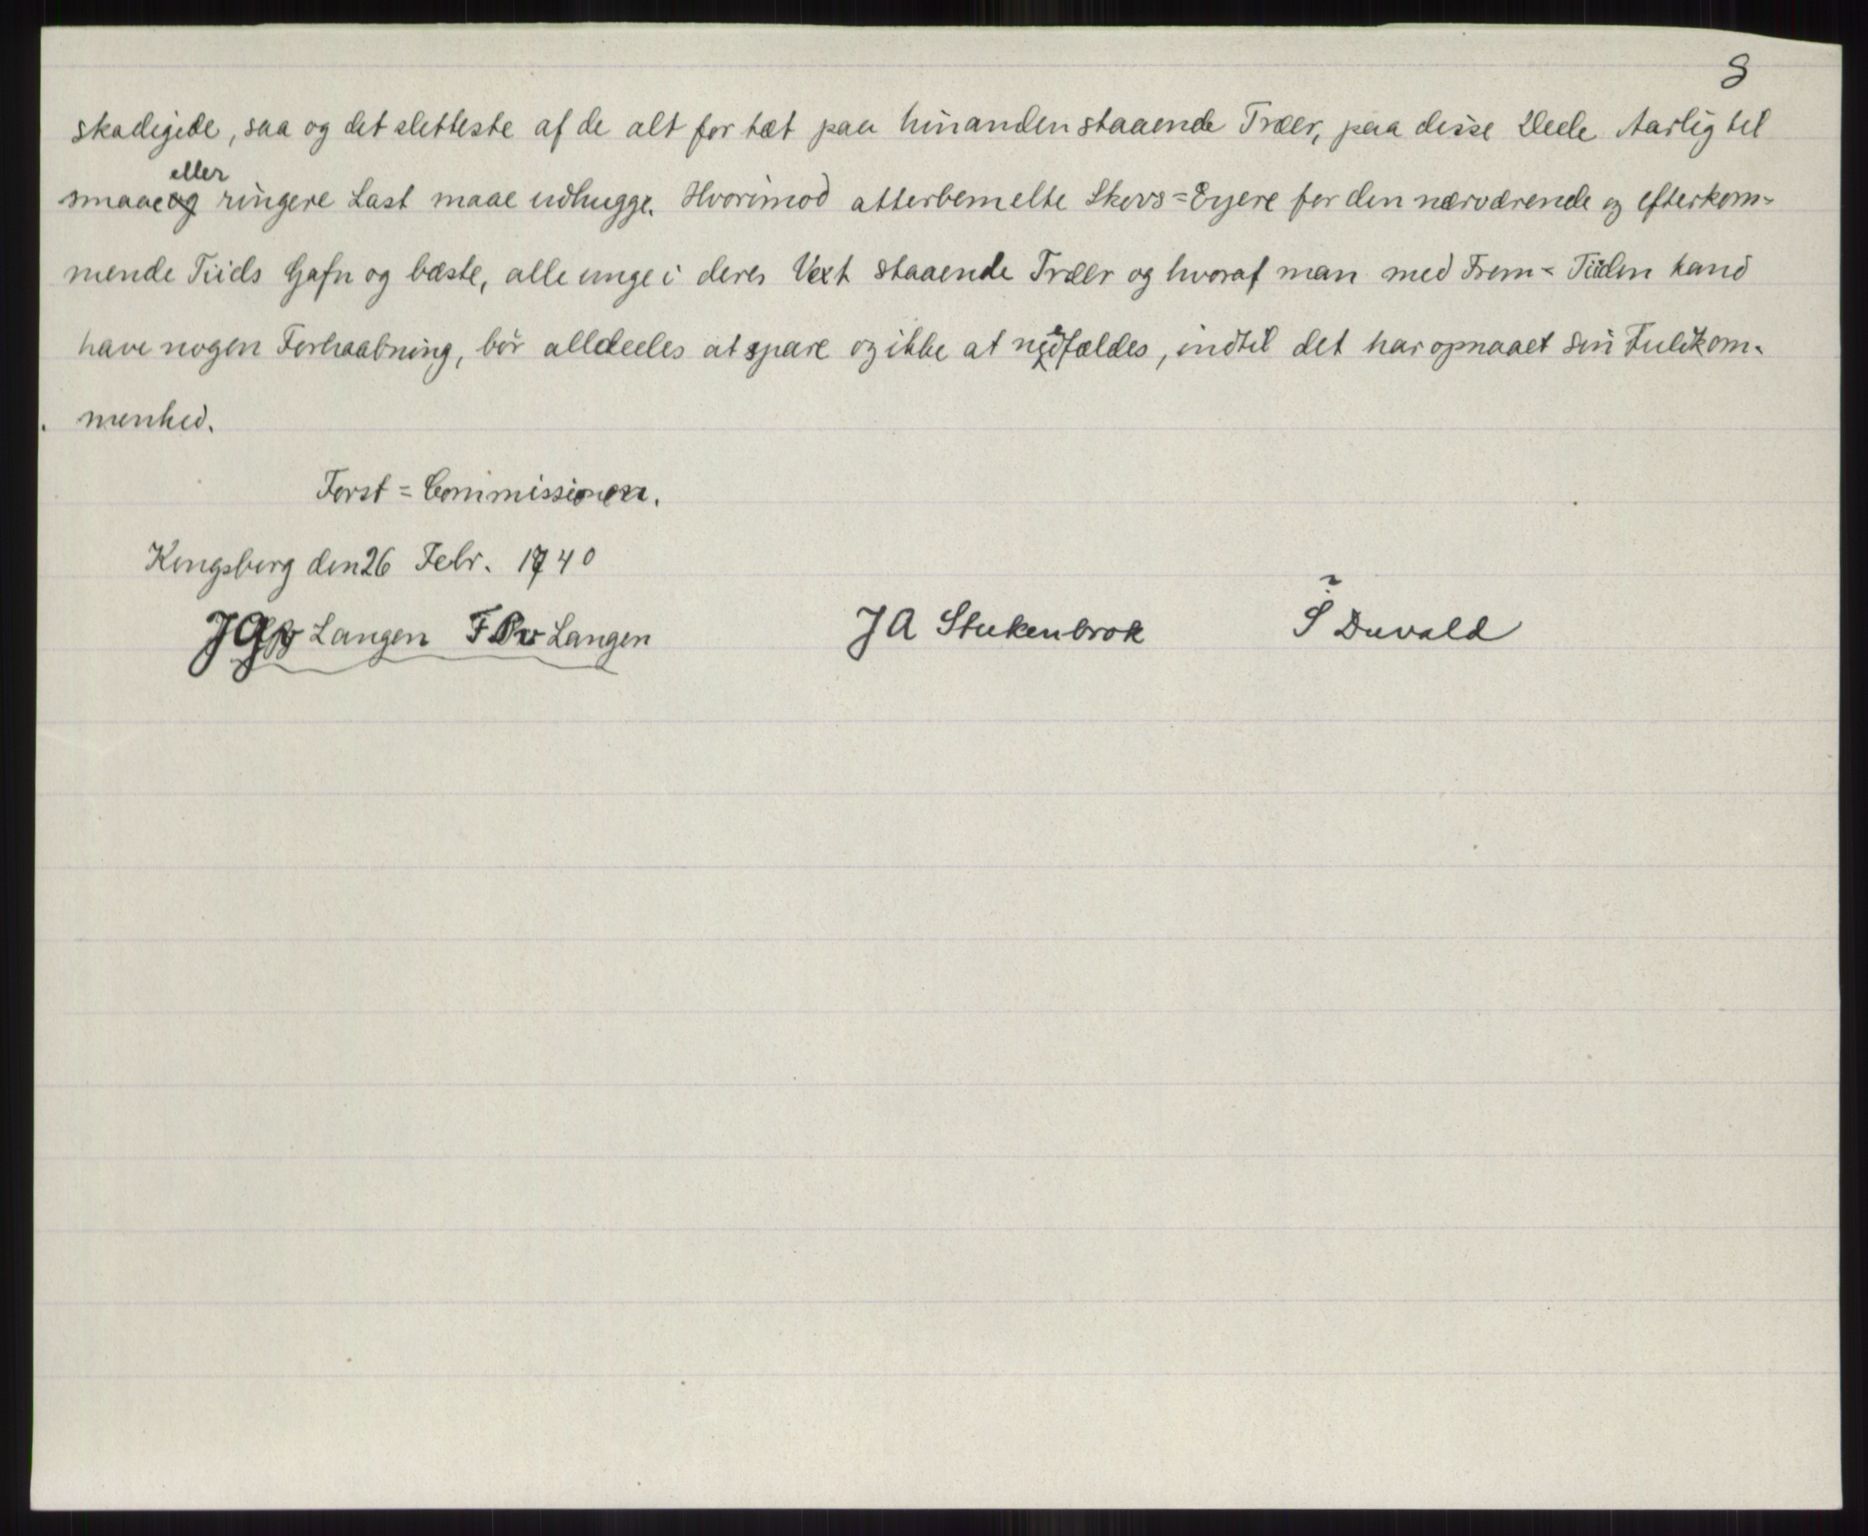 8
skadigede, saa og det sletteste af de alt for tæt paa hinanden staaende Træer, paa disse Deele Aarlig til
smaae og eller ringere Last maae udhugge. Hvorimod atterbemelte Skovs=Eyere for den nærværende og efterkom=
mende Tiids Gafn og bæste, alle unge i deres Vext staaende Træer og hvoraf man med Frem= Tiiden kand
have nogen Forhaabning, bör alldeeles at spare og ikke at nedfældes, indtil det har opnaaet sin Fuldkom=
menhed.
Forst = Commissionen.
Kongsberg den 26 Febr. 1740
J G v Langen F P v Langen J A Stukenbrok ? S Duvald